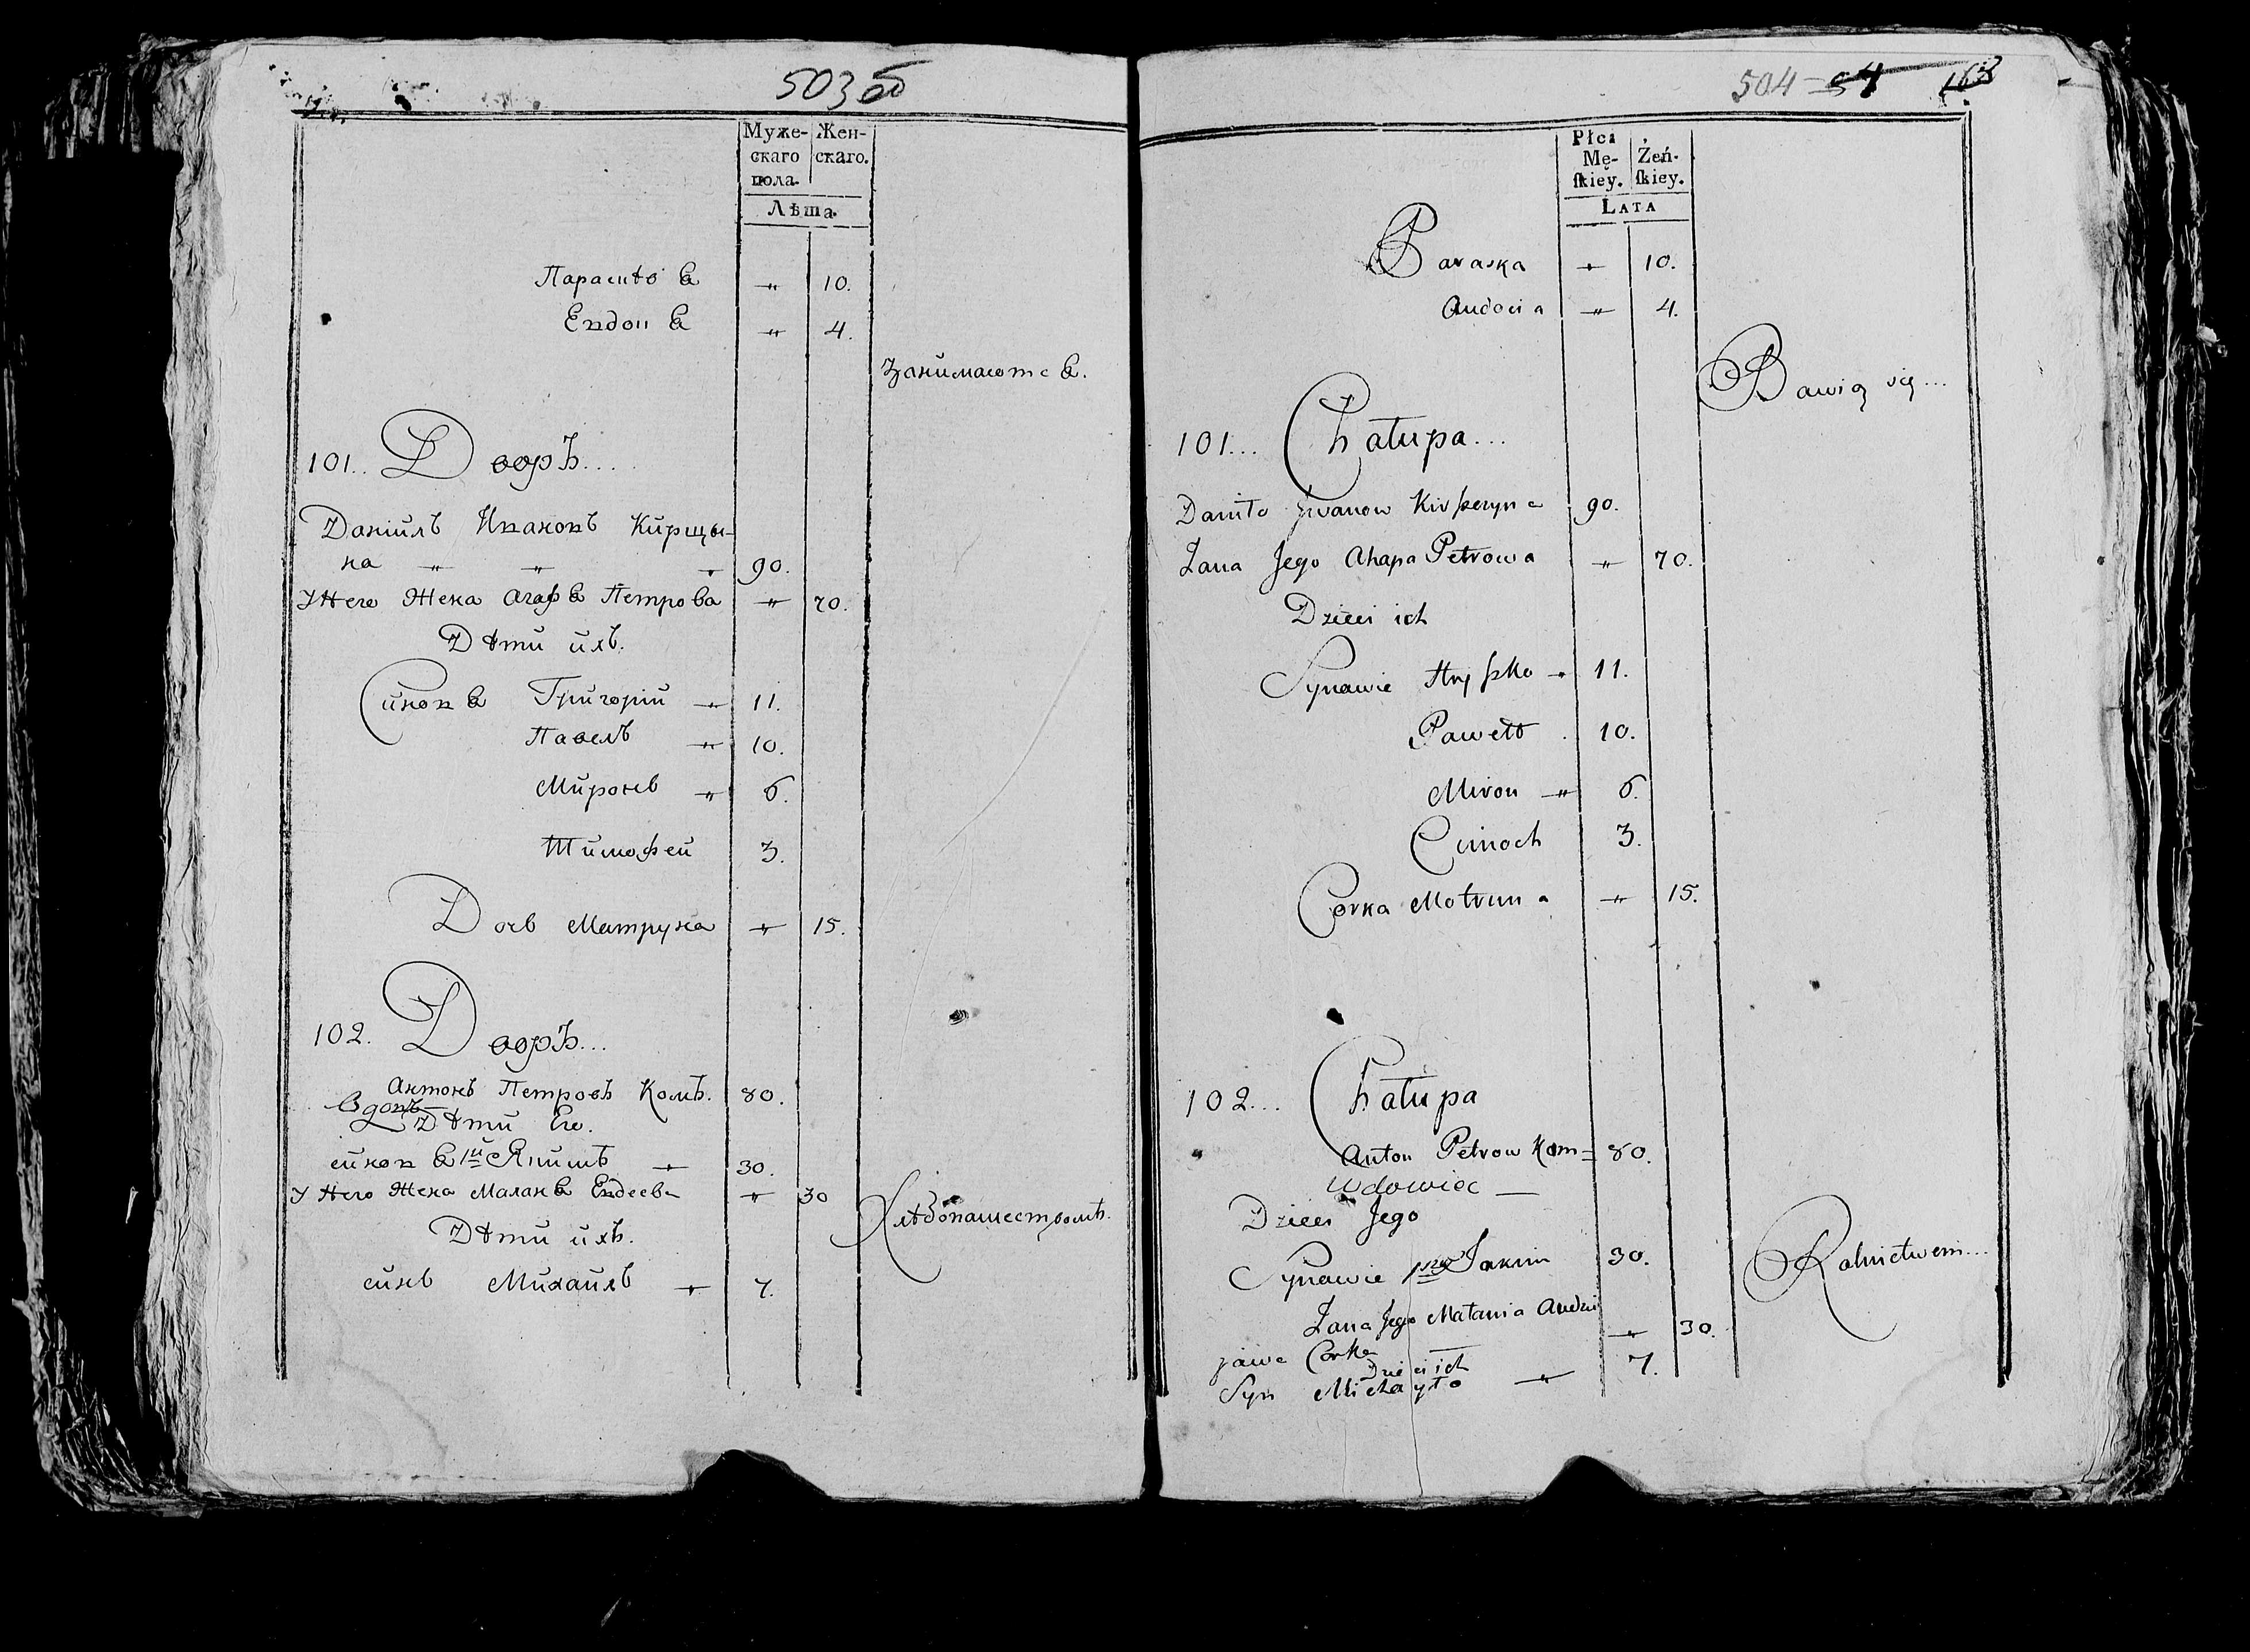 503 об
Муже-
скаго
пола.
Жен-
скаго.
Лѣта.
Параскѣвья " 10.
Евдокія " 4.
Занимаются.
101.. Дворъ....
Даніилъ Ивановъ Кирщы-
на " " " 90.
У Него Жена Агафья Петрова " 70.
Дѣти ихъ.
Синовья Григорій " 11.
Павелъ " 10.
Миронъ " 6.
Тимофей 3.
Дочь Матруна " 15.
102. Дворъ...
Антонъ Петровъ Комъ. 80.
Вдовъ
Дѣти Его.
синовья 1й Якимъ " 30.
У Него Жена Маланья Авдеева " 30
Хлѣбопашествомъ.
Дѣти ихъ.
синъ Михаилъ " 7.
504
Płci
Mę-
ſkiey.
Żeń-
ſkiey.
LATA
Paraska " 10.
Audocia " 4.
Bawią się...
101... Chałupa...
Daniło Iwanow Kirszczyna 90.
Żana Jego Ahapa Petrowa " 70.
Dzieci ich
Synawie Hryszko " 11.
Paweło . 10.
Miron " 6.
Cimoch 3.
Corka Motruna " 15.
102... Chałupa
Anton Petrow Kom= 80.
Wdowiec —
Dzieci Jego
Synawie 1szy Jakim 30.
Rolnictwem...
Żana Jego Małania Audzie
jawa Corka " 30.
Dzieci ich
Syn Michayło " 7.